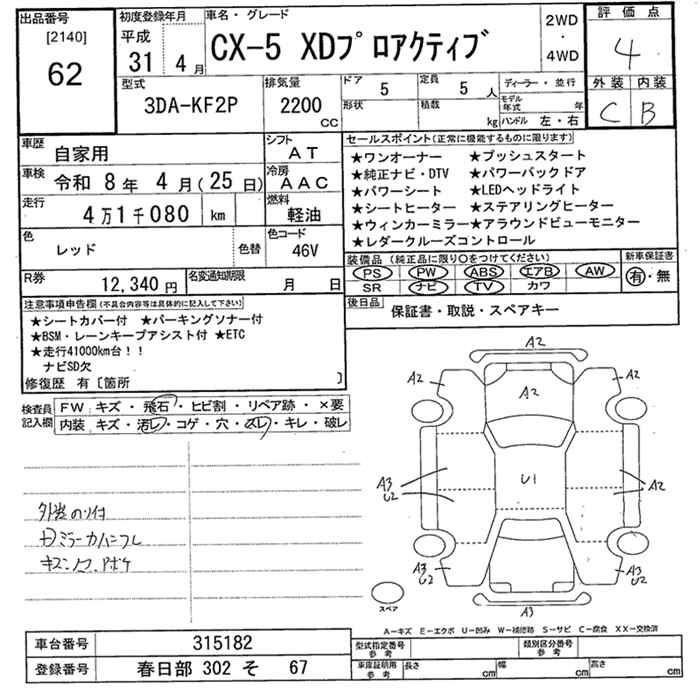 出品番号
[2140]
62
初度登録年月
平成
31 4月
車名・グレード
CX-5 XDプロアクティブ
2WD
・
4WD
評価点
4
外装 内装
C B
型式
3DA-KF2P
排気量
2200
CC
ドア 5
形状
定員 5 人
積数 kg
ディーラー・並行
モデル年式 年
ハンドル 左・右
車歴 自家用
車検 令和 8年 4月(25日)
走行 4万1千080 km
色 レッド 色替
シフト AT
冷房 AAC
燃料 軽油
色コード 46V
R券 12,340円
名変通知期限 月 日
セールスポイント(正常に機能するものに限ります)
★ワンオーナー ★プッシュスタート
★純正ナビ・DTV ★パワーバックドア
★パワーシート ★LEDヘッドライト
★シートヒーター ★ステアリングヒーター
★ウィンカーミラー★アラウンドビューモニター
★レダークルーズコントロール
装備品 (純正品に限り○をつけてください)
PS PW ABS エアB AW
SR ナビ TV カワ
新車保証書
有・無
後日品 保証書・取説・スペアキー
注意事項申告欄(不具合内容等は具体的に記入して下さい)
★シートカバー付 ★パーキングソナー付
★BSM・レーンキープアシスト付 ★ETC
★走行41000km台!!
ナビSD欠
修復歴 有〔箇所 〕
検査員記入欄
FW キズ・飛石・ヒビ割・リペア跡・×要
内装 キズ・汚レ・コゲ・穴・スレ・キレ・破レ
キズ
A2
A2 A2
A2
A3
U2
U1
A2
A3
U2
A2
U2
A3
スペア
A-キズ E-エクボ U-凹み W-補修跡 S-サビ C-腐食 XX-交換済
車台番号 315182
登録番号 春日部 302 そ 67
型式指定番号 参考
類別区分番号 参考
車庫証明用 参考
長さ cm 幅 cm 高さ cm